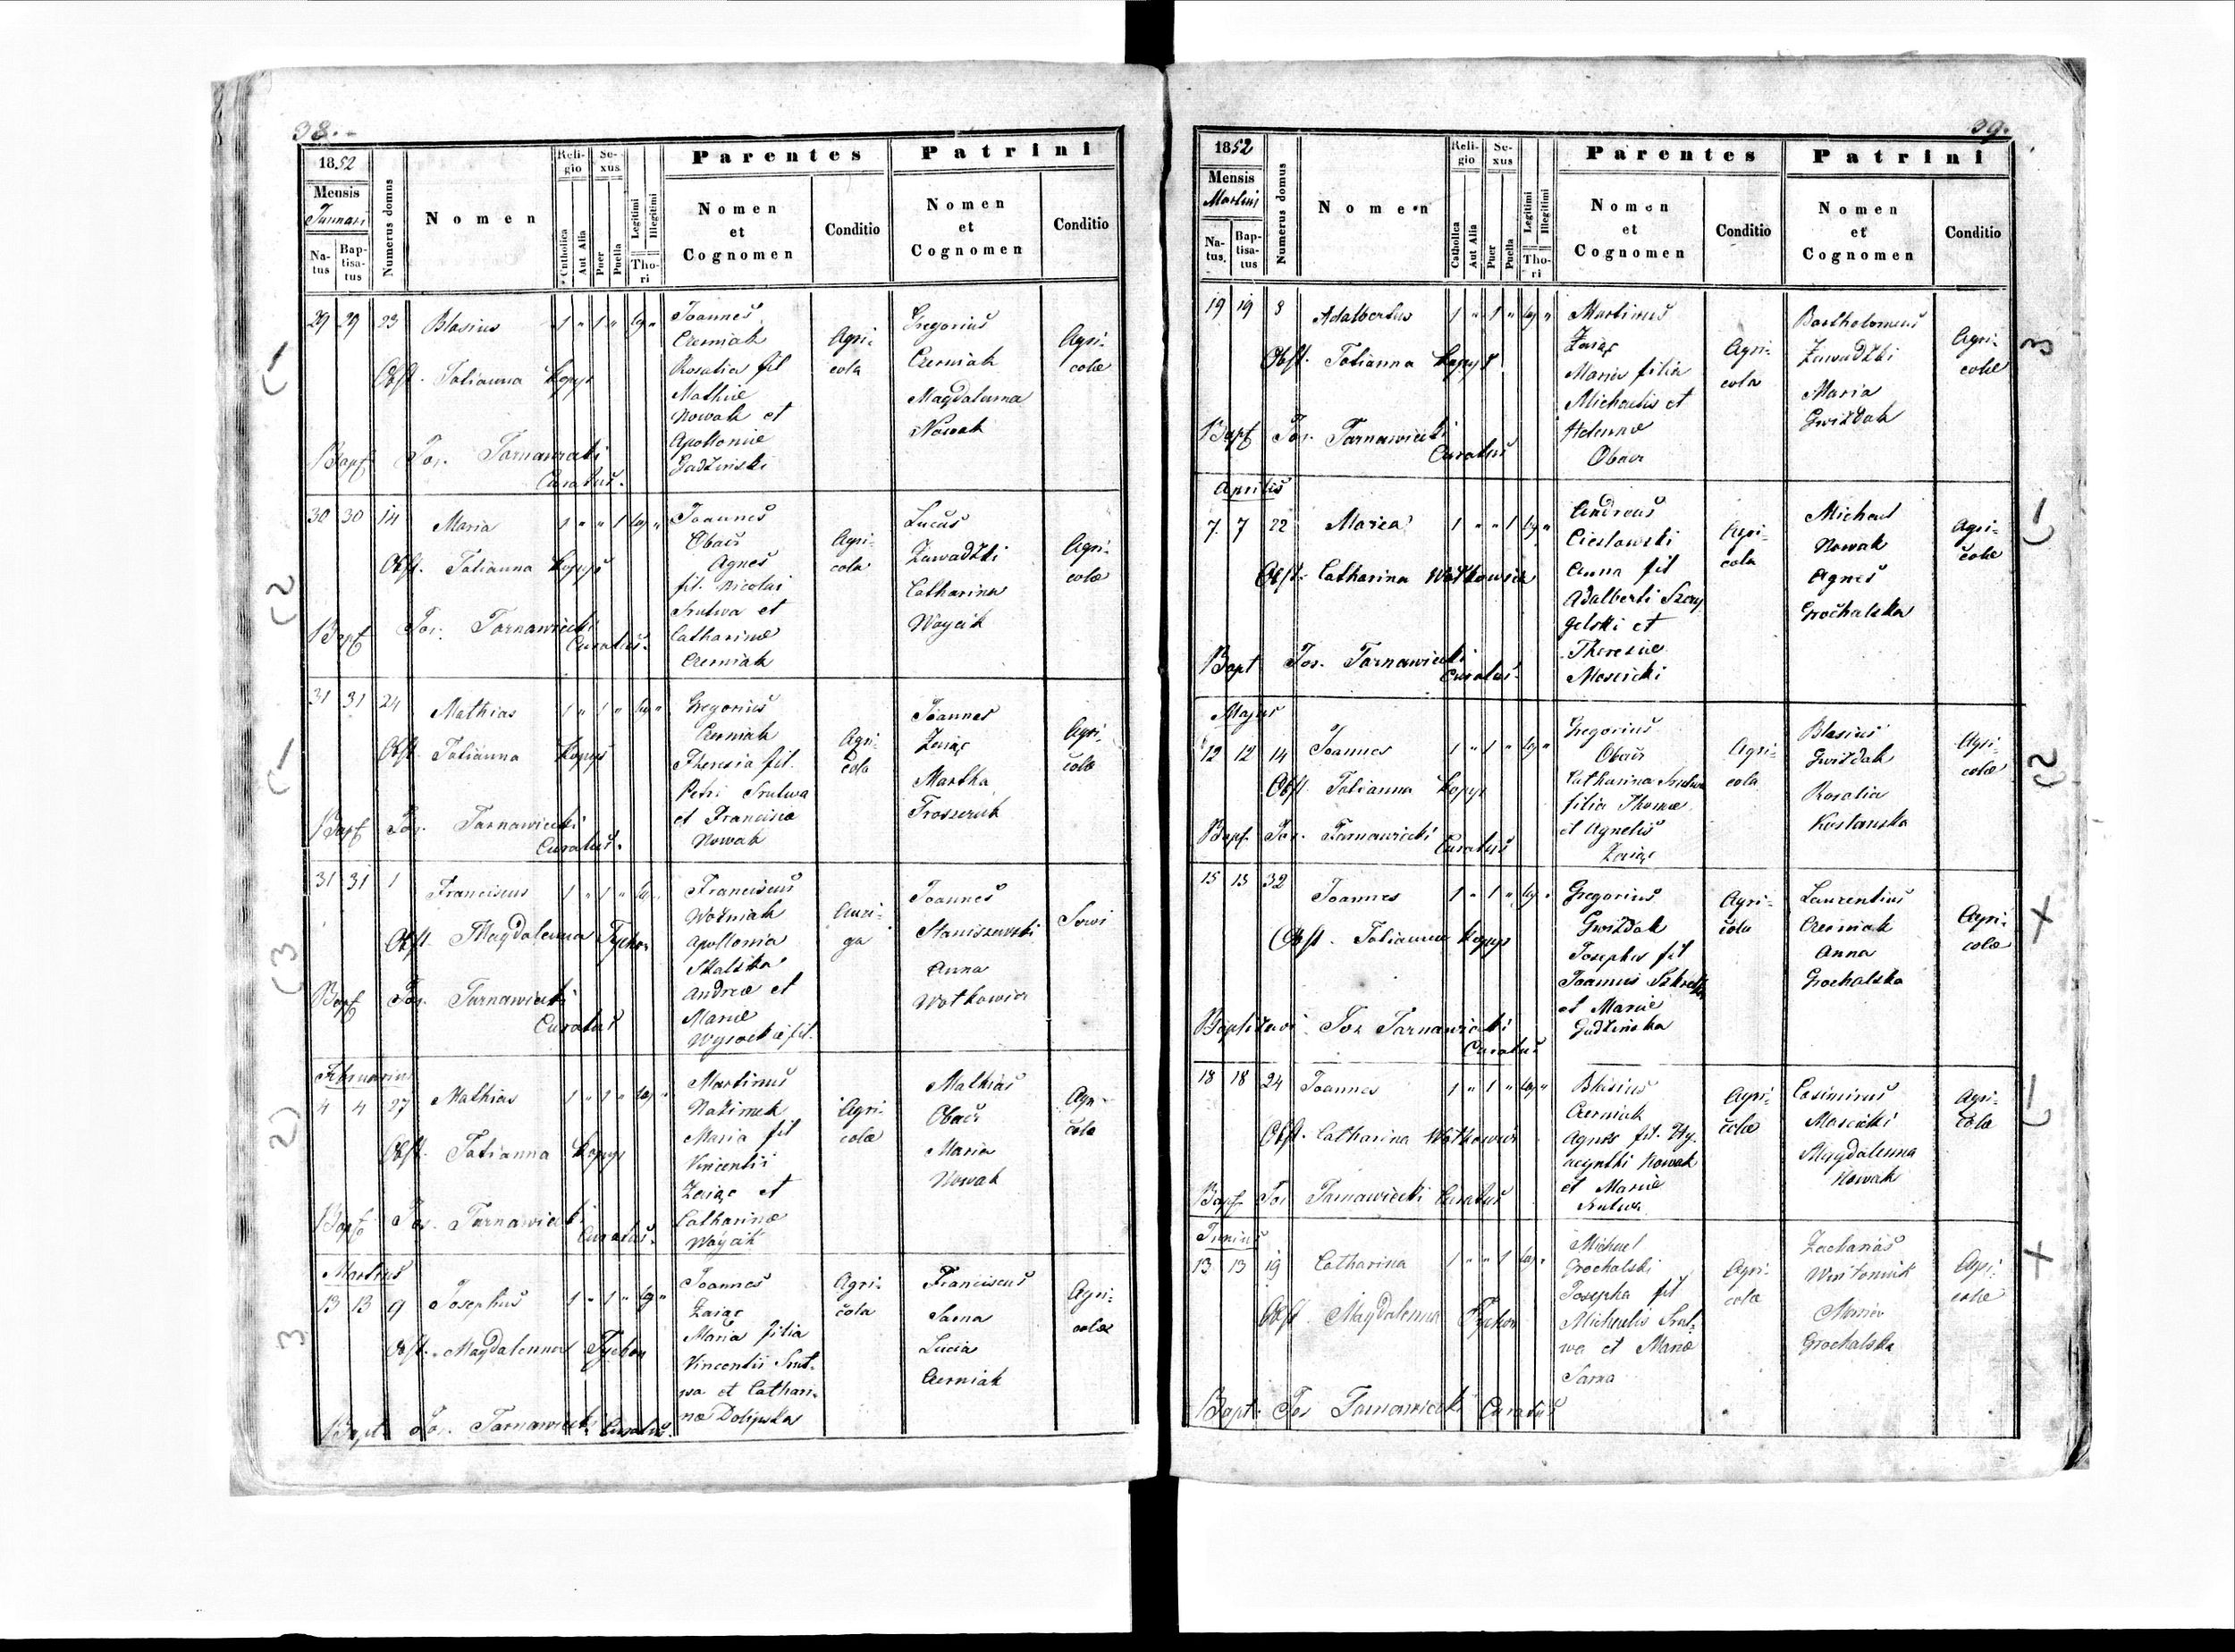 38.
1852
Mensis
Januari
Natus
Baptisatus
Numerus domus
Nomen
Religio
Catholica
Aut Alia
Sexus
Puer
Puella
Legitimi
Illegitimi
Thori
Parentes
Nomen
et
Cognomen
Conditio
Patrini
Nomen
et
Cognomen
Conditio
29 29 23 Blasius 1 " 1 " leg "
Obst. Tatianna Kopys
Bapt Jos. Tarnawiecki
Curatus.
Joannes
Czerniak
Rosalia fil
Mathiæ
Nowak et
Apolloniæ
Gudzinski
Agri-
cola
Gregorius
Czerniak
Magdalenna
Nowak
Agri-
colæ
30 30 14 Maria 1 " " 1 leg "
Obst. Tatianna Kopys
Bapt Jos. Tarnawiecki
Curatus.
Joannes
Obacz
Agnes
fil. Nicolai
Srutwa et
Catharinæ
Czerniak
Agri-
cola
Lucas
Zawadzki
Catharina
Woycik
Agri-
colæ
31 31 24 Mathias 1 " 1 " leg "
Obst Tatianna Kopys
Bapt Jos. Tarnawiecki
Curatus.
Gregorius
Czerniak
Theresia fil.
Petri Srutwa
et Franciscæ
Nowak
Agri-
cola
Joannes
Zaiąc
Martha
Agri-
colæ
31 31 1 Franciscus 1 " 1 " leg "
Obst. Magdalenna Tychon
Bapt Jos. Tarnawiecki
Curatus
Franciscus
Woźniak
Apollonia
Skalska
Andreæ et
Mariæ
Wysockie fil.
Auri-
ga
Joannes
Staniszewski
Anna
Wotkowicz
Servi
Februarius
4 4 27 Mathias 1 " 1 " leg "
Obst. Tatianna Kopys
Bapt Jos. Tarnawiecki
Curatus.
Martinus
Nazimek
Maria fil
Vincentii
Zaiąc et
Catharinæ
Woycik
Agri-
colæ
Mathias
Obacz
Maria
Nowak
Agri-
cola
Martius
13 13 9 Josephus 1 " 1 " leg "
Obst. Magdalenna Tychon
Bapt Jos. Tarnawiecki Curatus.
Joannes
Zaiąc
Maria filia
Vincentii Srut-
wa et Cathari-
næ Dolipska
Agri-
cola
Franciscus
Sama
Lucia
Czerniak
Agri-
colæ
39.
1852
Mensis
Martius
Natus.
Baptisatus
Numerus domus
Nomen
Religio
Catholica
Aut Alia
Sexus
Puer
Puella
Legitimi
Illegitimi
Thori
Parentes
Nomen
et
Cognomen
Conditio
Patrini
Nomen
et
Cognomen
Conditio
19 19 8 Adalbertus 1 " 1 " leg "
Obst. Tatianna Kopys
Bapt Jos. Tarnawiecki
Curatus
Martinus
Zaiąc
Maria filia
Michaelis et
Obacz
Agri-
cola
Bartholomeus
Zawadzki
Maria
Gwizdak
Agri-
colæ
Aprilis
7. 7 22 Maria 1 " " 1 leg "
Obst. Catharina Wotkowicz
Bapt Jos. Tarnawiecki
Curatus.
Andreas
Cieslawski
Anna fil
Adalberti Szczy
gelski et
Theresiæ
Moscicki
Agri-
cola
Michael
Nowak
Agnes
Grochalska
Agri-
colæ
Majus
12 12 14 Joannes 1 " 1 " leg "
Obst. Tatianna Kopys
Bapt. Jos. Tarnawiecki
Curatus
Gregorius
Obacz
Catharina Srutwa
filia Thomæ
et Agnetis
Zaiąc
Agri-
cola
Blasius
Gwizdak
Rosalia
Agri-
colæ
15 15 32 Joannes 1 " 1 " leg "
Obst. Tatianna Kopys
Baptizavi Jos Tarnawiecki
Curatus
Gregorius
Gwizdak
Josepha fil
Joannis
et Mariæ
Gudzinska
Agri-
cola
Laurentius
Czerniak
Anna
Grochalska
Agri-
colæ
18 18 24 Joannes 1 " 1 " leg "
Obst. Catharina Wotkowicz
Bapt Jos Tarnawiecki Curatus
Blasius
Czerniak
Agnes fil. Hy-
acynthi Nowak
et Mariæ
Srutwa
Agri-
colæ
Casimirus
Moscicki
Magdalenna
Nowak
Agri-
cola
Junius
13 13 19 Catharina 1 " " 1 leg "
Obst. Magdalenna Tychon
Bapt. Jos Tarnawiecki Curatus
Michael
Grochalski
Josepha fil
Michaelis Srut-
wa et Mariæ
Sama
Agri-
cola
Zacharias
Maria
Grochalska
Agri-
colæ